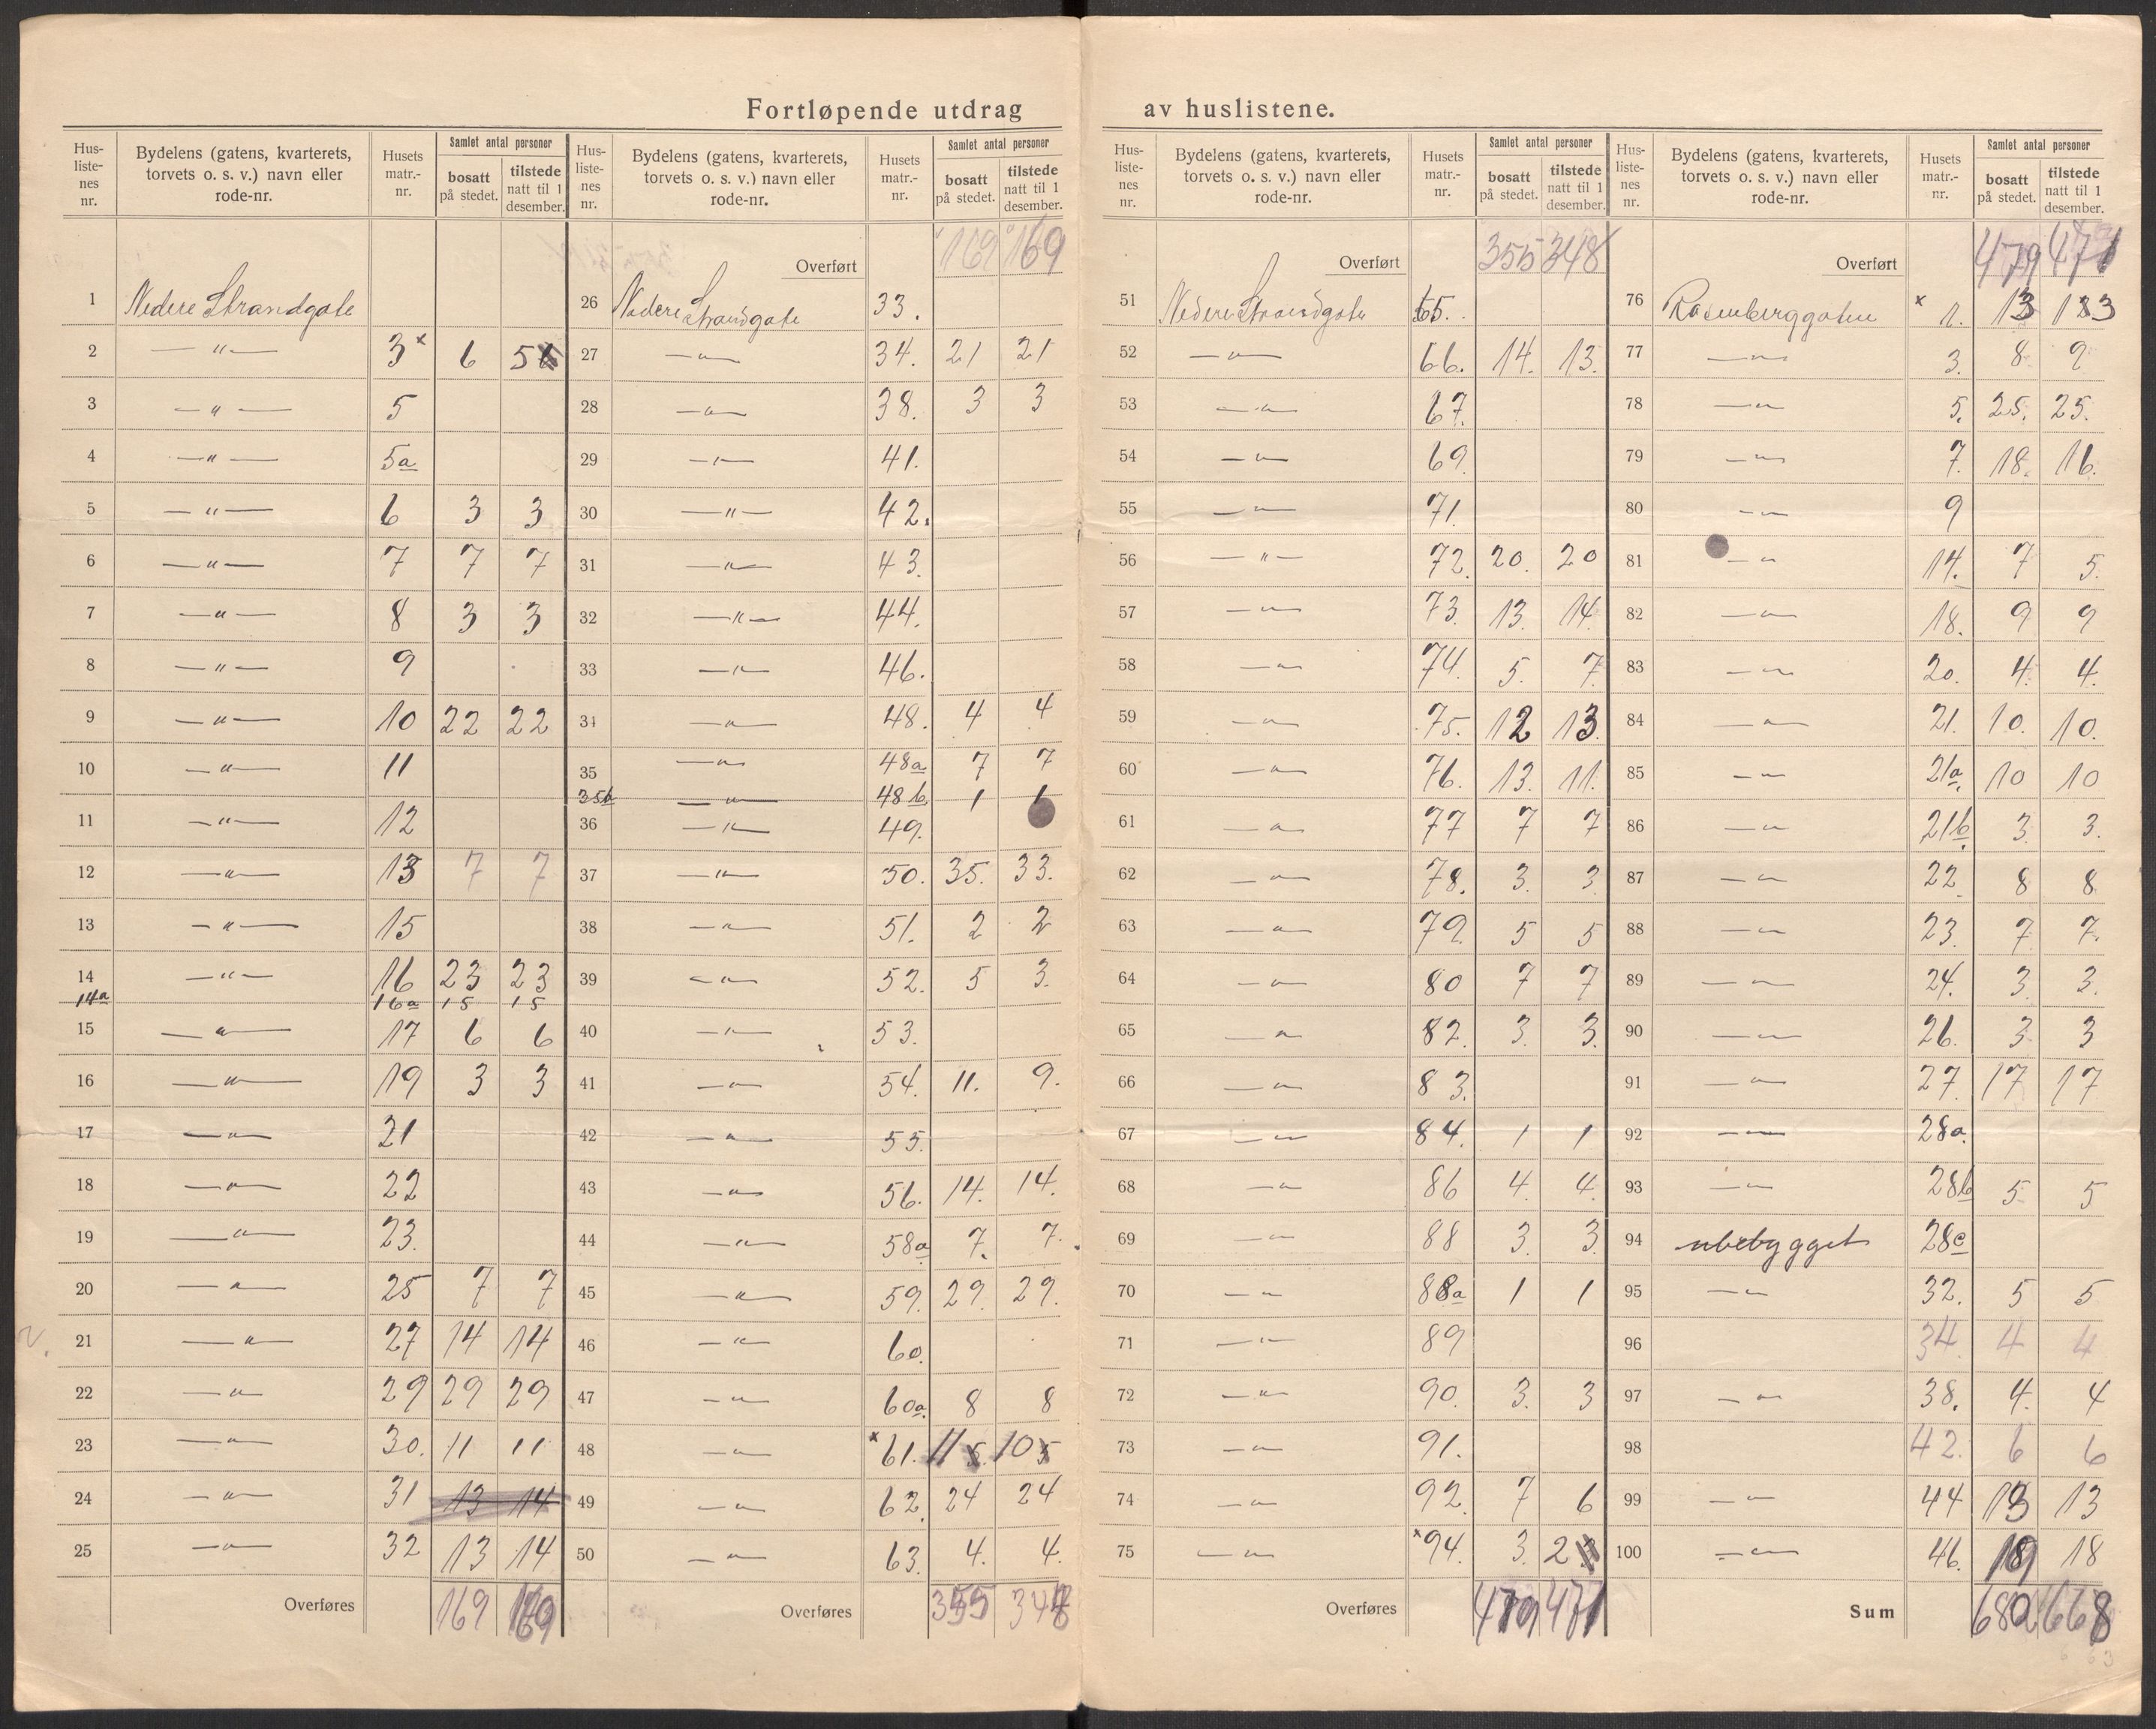 Fortløpende utdrag av huslistene.
Hus-liste-nes nr. | Bydelens (gatens, kvarterets, torvets o. s. v.) navn eller rode-nr. | Husets matr.-nr. | Samlet antal personer | bosatt på stedet. | tilstede natt til 1 desember.
1 Nedere Strandgate
2 —"— 3x 6 5
3 —"— 5
4 —"— 5a
5 —"— 6 3 3
6 —"— 7 7 7
7 —"— 8 3 3
8 —"— 9
9 —"— 10 22 22
10 —"— 11
11 —"— 12
12 —"— 13 7 7
13 —"— 15
14 —"— 16 23 23
14a 16a 15 15
15 —"— 17 6 6
16 —"— 19 3 3
17 —"— 21
18 —"— 22
19 —"— 23.
20 —"— 25 7 7
21 —"— 27 14 14
22 —"— 29 29 29
23 —"— 30. 11 11
24 —"— 31 13 14
25 —"— 32 13 14
Overføres 169 169
Hus-liste-nes nr. | Bydelens (gatens, kvarterets, torvets o. s. v.) navn eller rode-nr. | Husets matr.-nr. | Samlet antal personer | bosatt på stedet. | tilstede natt til 1 desember.
Overført 169 169
26 Nedere Strandgate 33.
27 —"— 34. 21 21
28 —"— 38. 3 3
29 —"— 41.
30 —"— 42.
31 —"— 43.
32 —"— 44.
33 —"— 46.
34 —"— 48. 4 4
35 —"— 48a 7 7
35b —"— 48b 1 1
36 —"— 49.
37 —"— 50. 35. 33.
38 —"— 51. 2 2
39 —"— 52. 5 3.
40 —"— 53.
41 —"— 54. 11. 9.
42 —"— 55.
43 —"— 56. 14. 14.
44 —"— 58a 7. 7.
45 —"— 59. 29. 29.
46 —"— 60.
47 —"— 60a. 8 8
48 —"— x61. 11 5. 10 5
49 —"— 62. 24 24
50 —"— 63. 4. 4.
Overføres 355 348
Hus-liste-nes nr. | Bydelens (gatens, kvarterets, torvets o. s. v.) navn eller rode-nr. | Husets matr.-nr. | Samlet antal personer | bosatt på stedet. | tilstede natt til 1 desember.
Overført 355 348
51 Nedere Strandgate 65.
52 —"— 66. 14. 13.
53 —"— 67.
54 —"— 69.
55 —"— 71.
56 —"— 72. 20. 20
57 —"— 73. 13. 14.
58 —"— 74. 5. 7.
59 —"— 75. 12 13.
60 —"— 76. 13. 11.
61 —"— 77 7 7
62 —"— 78. 3. 3.
63 —"— 79. 5 5
64 —"— 80 7 7
65 —"— 82. 3. 3.
66 —"— 83.
67 —"— 84. 1 1
68 —"— 86 4. 4.
69 —"— 88 3. 3.
70 —"— 88a 1 1
71 —"— 89
72 —"— 90. 3. 3
73 —"— 91.
74 —"— 92. 7 6
75 —"— x94. 3. 2
Overføres 479 471
Hus-liste-nes nr. | Bydelens (gatens, kvarterets, torvets o. s. v.) navn eller rode-nr. | Husets matr.-nr. | Samlet antal personer | bosatt på stedet. | tilstede natt til 1 desember.
Overført 479 471
76 Rosenberggaten x 1. 13 13
77 —"— 3. 8. 9
78 —"— 5. 25. 25.
79 —"— 7. 18. 16.
80 —"— 9
81 —"— 14. 7 5.
82 —"— 18. 9 9
83 —"— 20. 4. 4.
84 —"— 21. 10. 10.
85 —"— 21a. 10 10
86 —"— 21b. 3. 3.
87 —"— 22. 8 8
88 —"— 23. 7. 7.
89 —"— 24. 3. 3.
90 —"— 26. 3. 3
91 —"— 27. 17 17
92 —"— 28a.
93 —"— 28b 5 5
94 ubebygget 28c
95 —"— 32. 5 5
96 34. 4 4
97 —"— 38. 4. 4
98 42. 6 6
99 —"— 44 13 13
100 —"— 46. 19 18
Sum 680 668